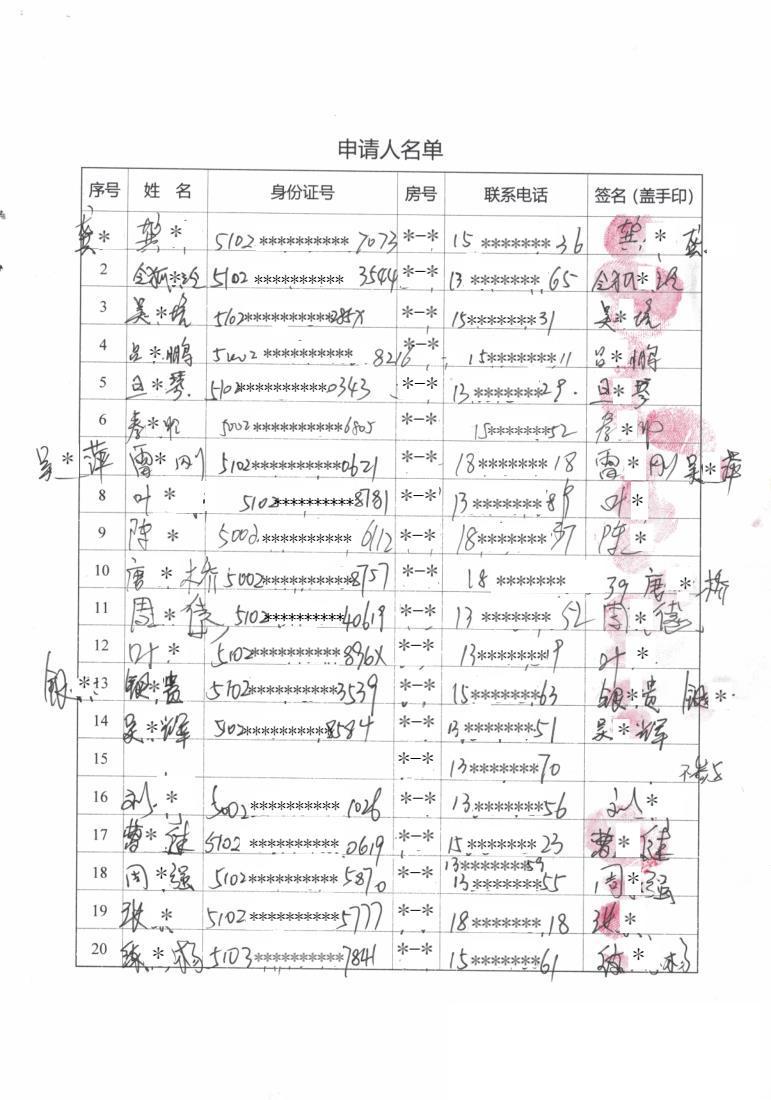 申请人名单
序号 姓 名 身份证号 房号 联系电话 签名（盖手印）
龚* 龚* 5102********** 7073 *-* 15 ******* 36 龚*
2 令狐* 5102 ********** 3544 *-* 13 ******* 65 令狐*
3 吴* 5102********** *-* 15*******31 吴*
4 吕*鹏 ********** 8216 *-* 15*******11 吕*鹏
5 *琴 5102**********0343 *-* 13*******29 *琴
6 5002**********6805 *-* 15*******52
吴*萍 雷*刚 5102**********0621 *-* 18*******18 雷*刚 吴*萍
8 叶* 5102**********8181 *-* 13*******89 叶*
9 陈* 5002********** 6112 *-* 18******* 陈*
10 唐*桥 5002**********8757 *-* 18 ******* 39 唐*桥
11 周* 5102**********0619 *-* 13 ******* 52 周*
12 叶* 5102**********896X *-* 13*******9 叶*
13 银*贵 5102**********3539 *-* 15*******63 银*贵 银*
14 吴*辉 5102**********8584 *-* 13*******51 吴*辉
15 *-* 13*******70
16 刘* 5002********** 1026 *-* 13*******56 刘*
17 曹* 5102 ********** 0619 *-* 15******* 23 曹*
18 周*强 5102**********5870 *-* 13*******59 13*******55 周*强
19 张* 5102**********5777 *-* 18*******18 张*
20 *杨 5103**********7841 *-* 15*******61 *杨